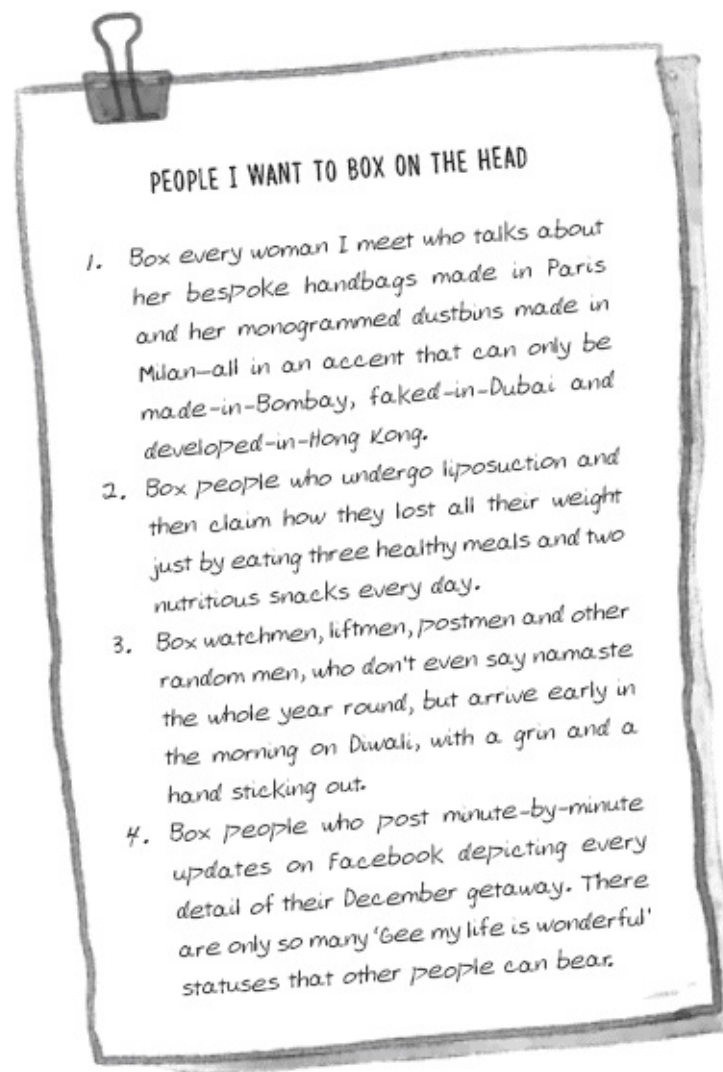 PEOPLE I WANT TO BOX ON THE HEAD
1. Box every woman I meet who talks about
her bespoke handbags made in Paris
and her monogrammed dustbins made in
Milan—all in an accent that can only be
made-in-Bombay, faked-in-Dubai and
developed-in-Hong Kong.
2. Box people who undergo liposuction and
then claim how they lost all their weight
just by eating three healthy meals and two
nutritious snacks every day.
3. Box watchmen, liftmen, postmen and other
random men, who don't even say namaste
the whole year round, but arrive early in
the morning on Diwali, with a grin and a
hand sticking out.
4. Box people who post minute-by-minute
updates on Facebook depicting every
detail of their December getaway. There
are only so many 'Gee my life is wonderful'
statuses that other people can bear.